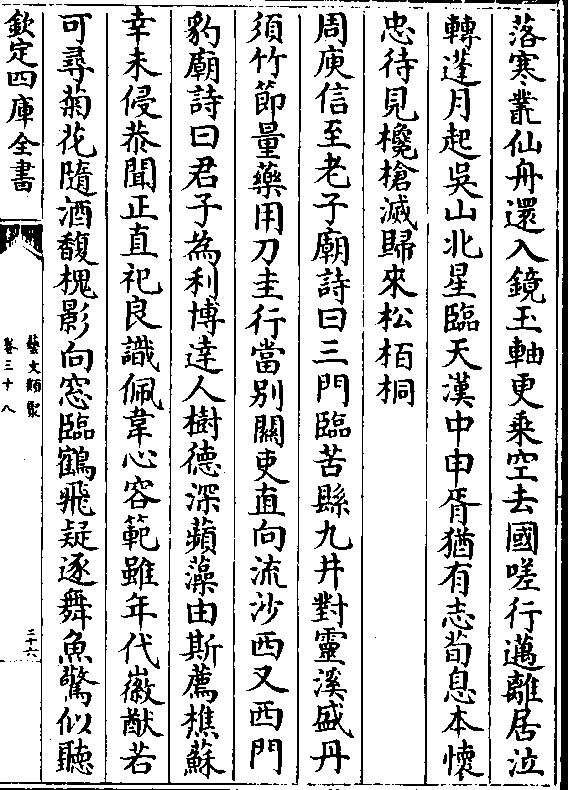 落寒叢仙舟還入鏡玉軸更乘空去國嗟行邁離居泣
轉蓬月起吳山北星臨天漢中申胥猶有志荀息本懷
忠待見欃槍滅歸來松栢桐
周庾信至老子廟詩曰三門臨苦縣九井對靈溪盛丹
須竹節量藥用刀圭行當別關吏直向流沙西又西門
豹廟詩曰君子為利博達人樹德深蘋藻由斯薦樵蘇
幸未侵恭聞正直祀良識佩韋心容範雖年代徽猷若
可尋菊花隨酒馥槐影向窓臨鶴飛疑逐舞魚驚似聽
欽定四庫全書
藝文類聚
卷三十八
三十六